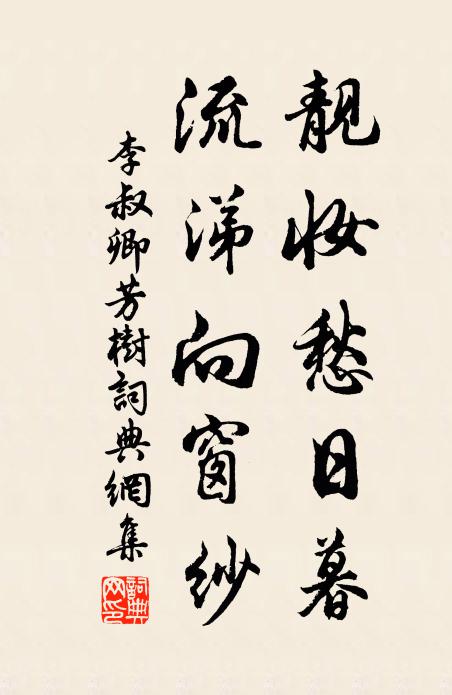 靚妝愁日暮
流涕向窗紗
李叔卿芳樹詞典網集
詞典网印